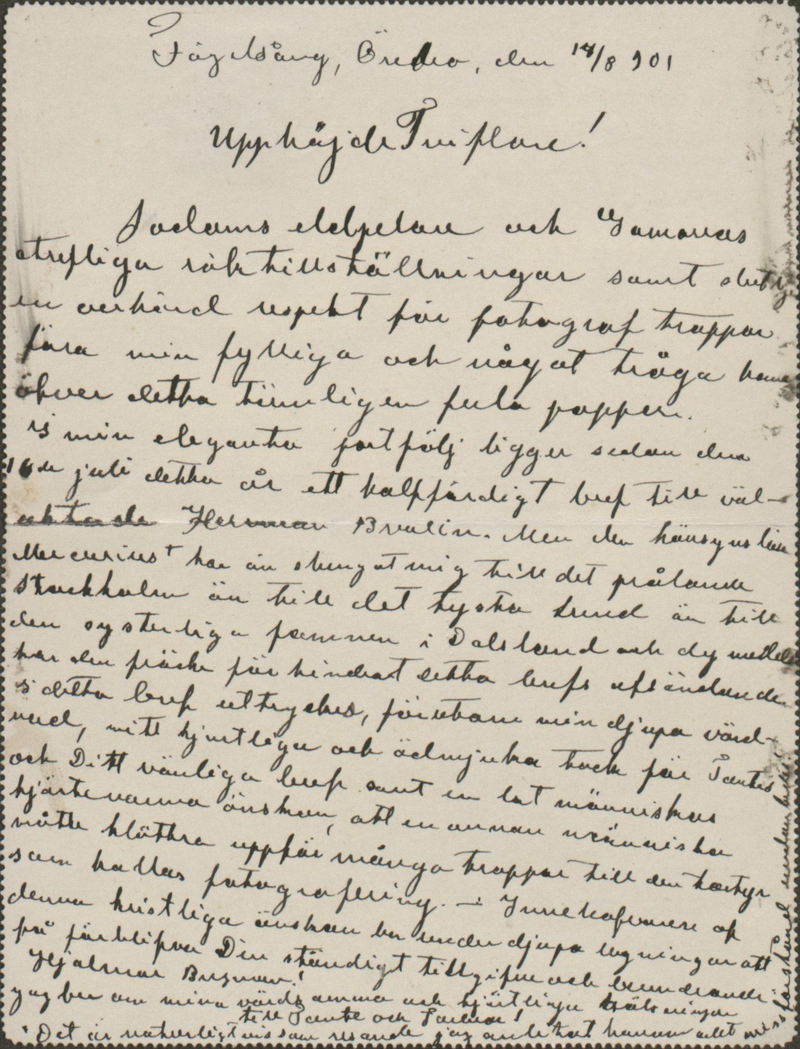 Fågelsång, Örebro, den 14/8 901
Upphöjde Tviflare!
Sodoms eldpelare och Gomorras
trefliga röktillställningar samt
en oerhörd respekt för fotograf trappor
föra min fylliga och något tröga hand
öfver detta himligen fula papper.
I min eleganta portfölj ligger sedan den
16de juli detta år ett halffärdigt bref till väl-
aktade Herrman Brulin. Men den hänsynslöse
Mercurius+ har än slungat mig till det prålande
Stockholm än till det tysta Lund än till
den systerliga famnen i Dalsland och dymedelst
har den fräcke förhindrat detta brefs afsändande
I detta bref uttryckes, förutom min djupa vörd-
nad, mitt hjertliga och ödmjuka tack för Tantes
och Ditt vänliga bref samt en lat människas
hjärtevarma önskan, att en annan människa
måtte klättra uppför många trappor till den tortyr
som kallas fotografering. – Innehafvaren af
denna kristliga önskan ber under djupa bugningar att
få förblifva Din ständigt tillgifne och beundrande
Hjalmar Bergman!
Jag ber om mina vördsamma och hjärtliga hälsningar
till Tante och Farbror!
+ Det är naturligtvis som resande jag anlitat honom allt
missförstånd undanbedes